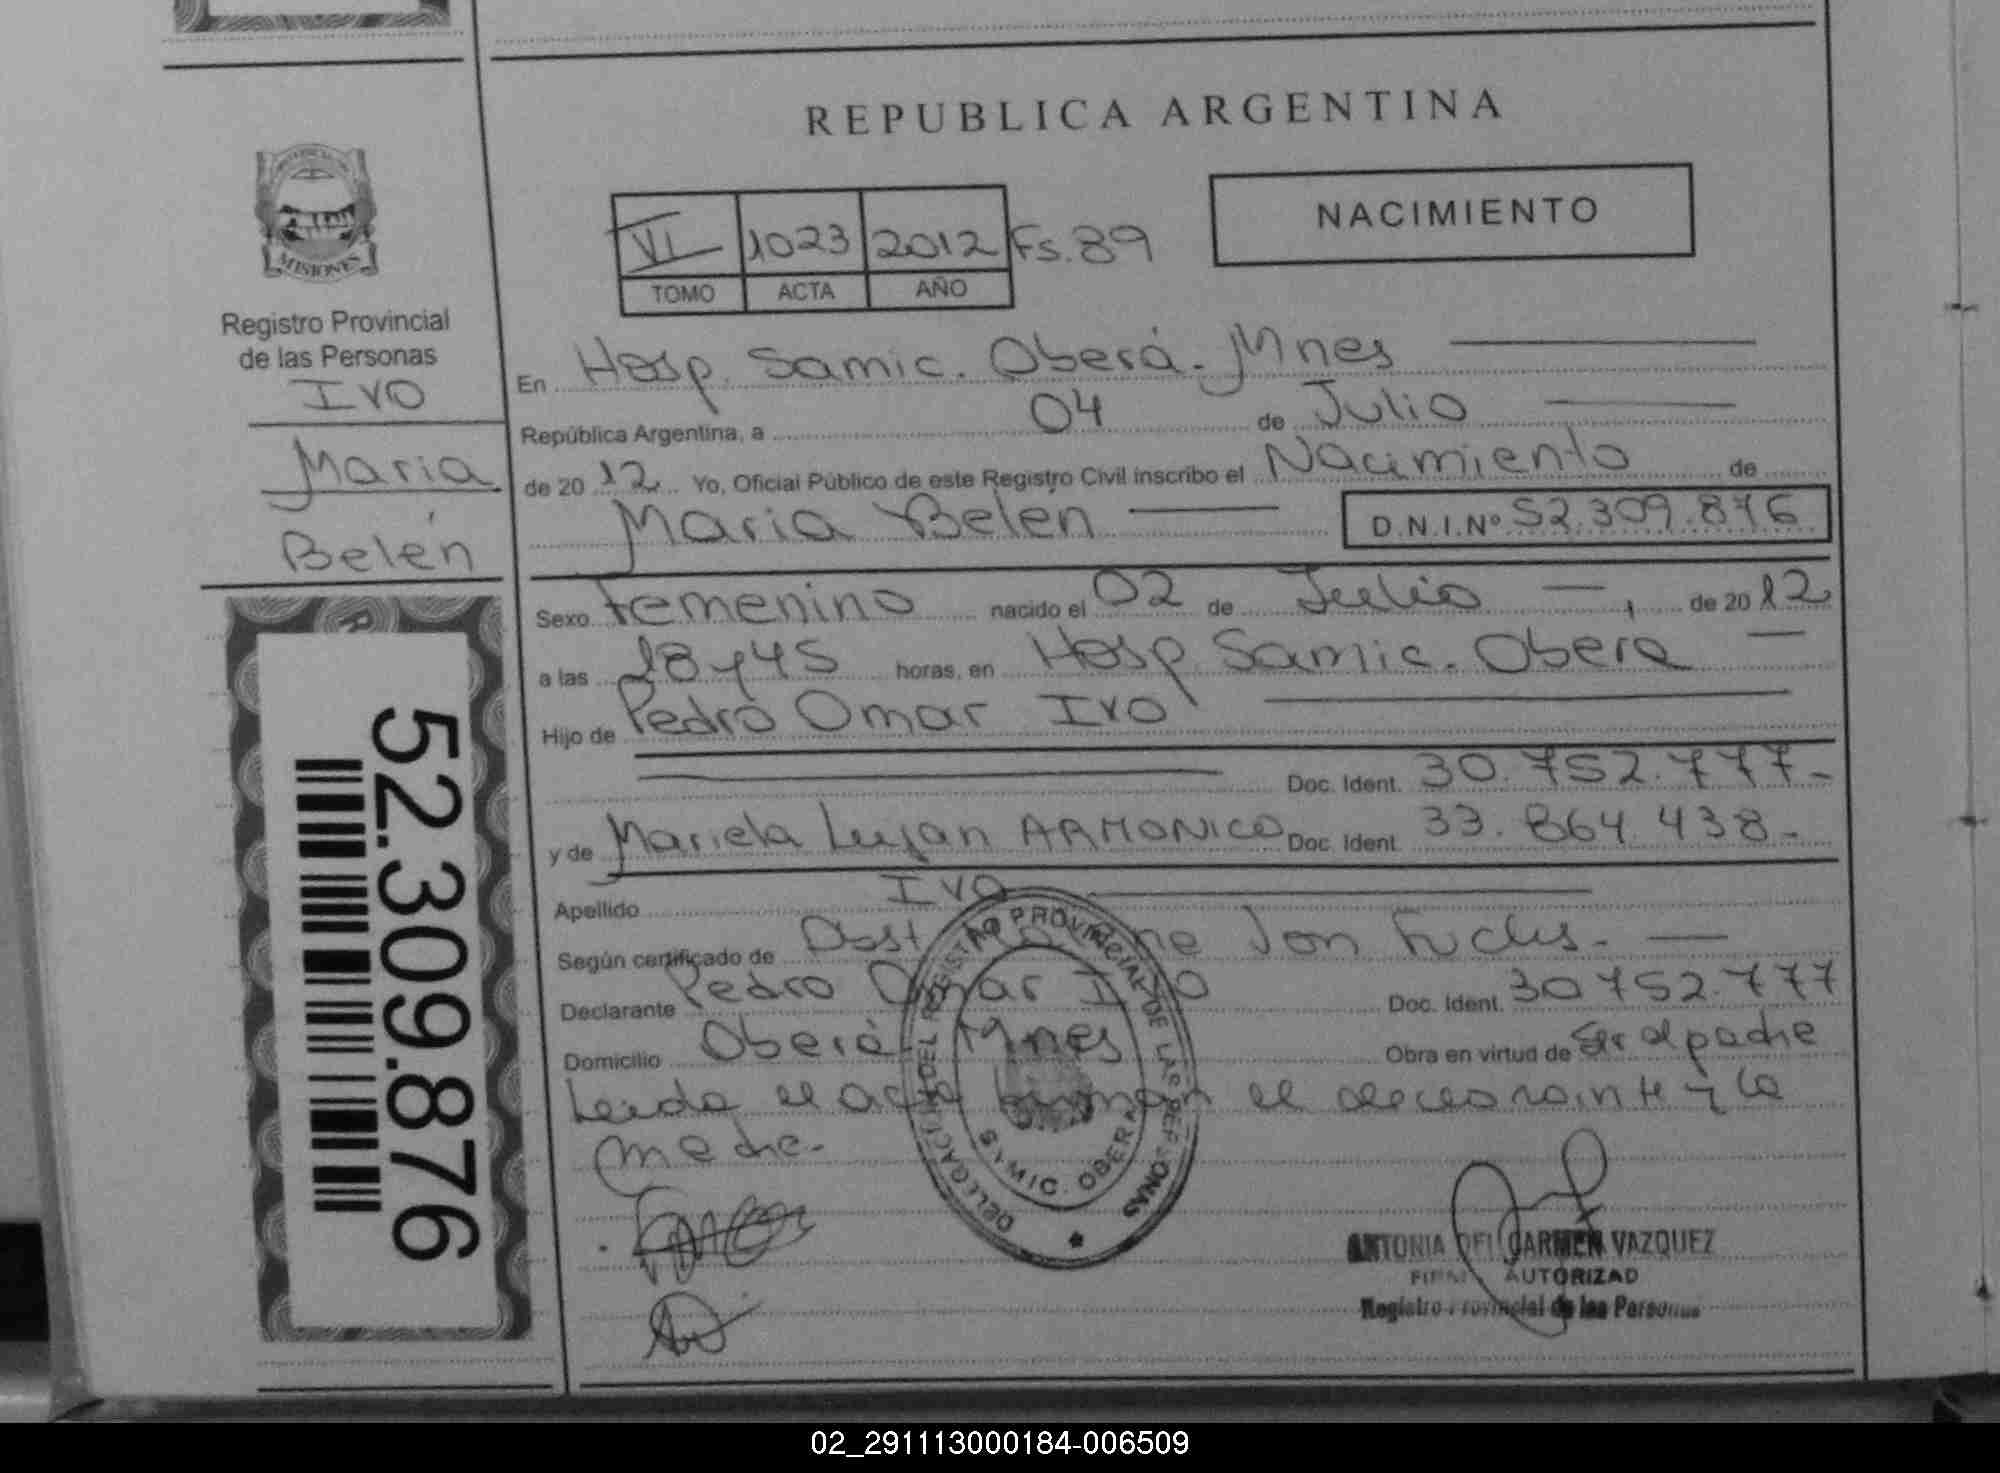 REPUBLICA ARGENTINA
NACIMIENTO
VI 1023 2012 Fs. 89
TOMO ACTA AÑO
MISIONES
Registro Provincial
de las Personas
IVO
Maria
Belén
52.309.876
En Hosp. Samic. Oberá. Mnes
República Argentina, a 04 de Julio
de 2012 Yo, Oficial Público de este Registro Civil inscribo el Nacimiento de
Maria Belén D.N.I.Nº 52.309.876
Sexo femenino nacido el 02 de Julio de 2012
a las 18 y 45 horas, en Hosp. Samic. Obera
Hijo de Pedro Omar IVO
Doc. Ident. 30.752.777-
y de Mariela Lujan ARMONICO Doc. Ident. 33.864.438-
Apellido IVO
Según certificado de Obst. Von Fuchs.
Declarante Pedro Omar Ivo Doc. Ident. 30752.777
Domicilio Oberá Mnes Obra en virtud de ser el padre
Leida el acta firman el declarante y la
madre.
DELEGACION DEL REGISTRO PROVINCIAL DE LAS PERSONAS
SAMIC. OBERA
ANTONIA DEL CARMEN VAZQUEZ
FIRMA AUTORIZAD
Registro Provincial de las Personas
02_291113000184-006509